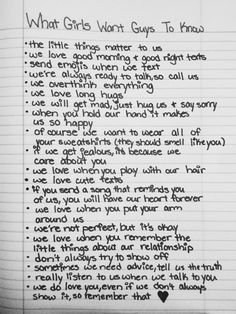 What Girls Want Guys To Know
• the little things matter to us
• we love good morning & good night texts
• send emojis when we text
• we're always ready to talk, so call us
• we overthink everything
• we love long hugs
• we will get mad, just hug us & say sorry
• when you hold our hand it makes
us so happy
• of course we want to wear all of
your sweatshirts (they should smell like you)
• if we get jealous, its because we
care about you
• we love when you play with our hair
• we love cute texts
• If you send a song that reminds you
of us, you will have our heart forever
• we love when you put your arm
around us
• we're not perfect, but it's okay
• we love when you remember the
little things about our relationship
• don't always try to show off
• sometimes we need advice, tell us the truth
• really listen to us when we talk to you
• we do love you, even if we don't always
show it, so remember that ♥